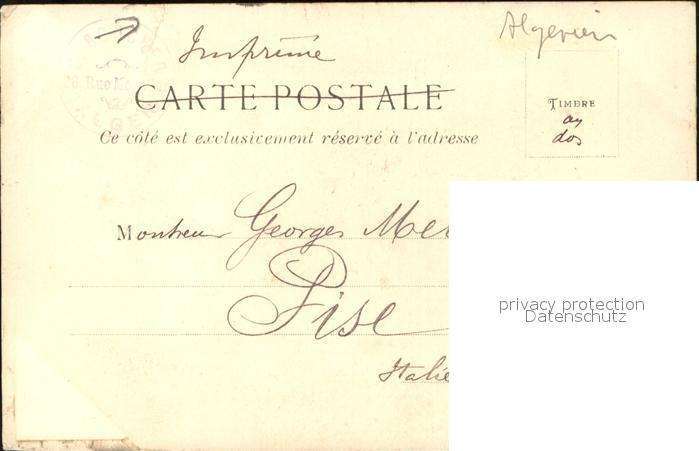 Algerien
Imprimé
CARTE POSTALE
TIMBRE
au
dos
Ce côté est exclusivement réservé à l'adresse
Monsieur Georges
Pise
Italie
privacy protection
Datenschutz